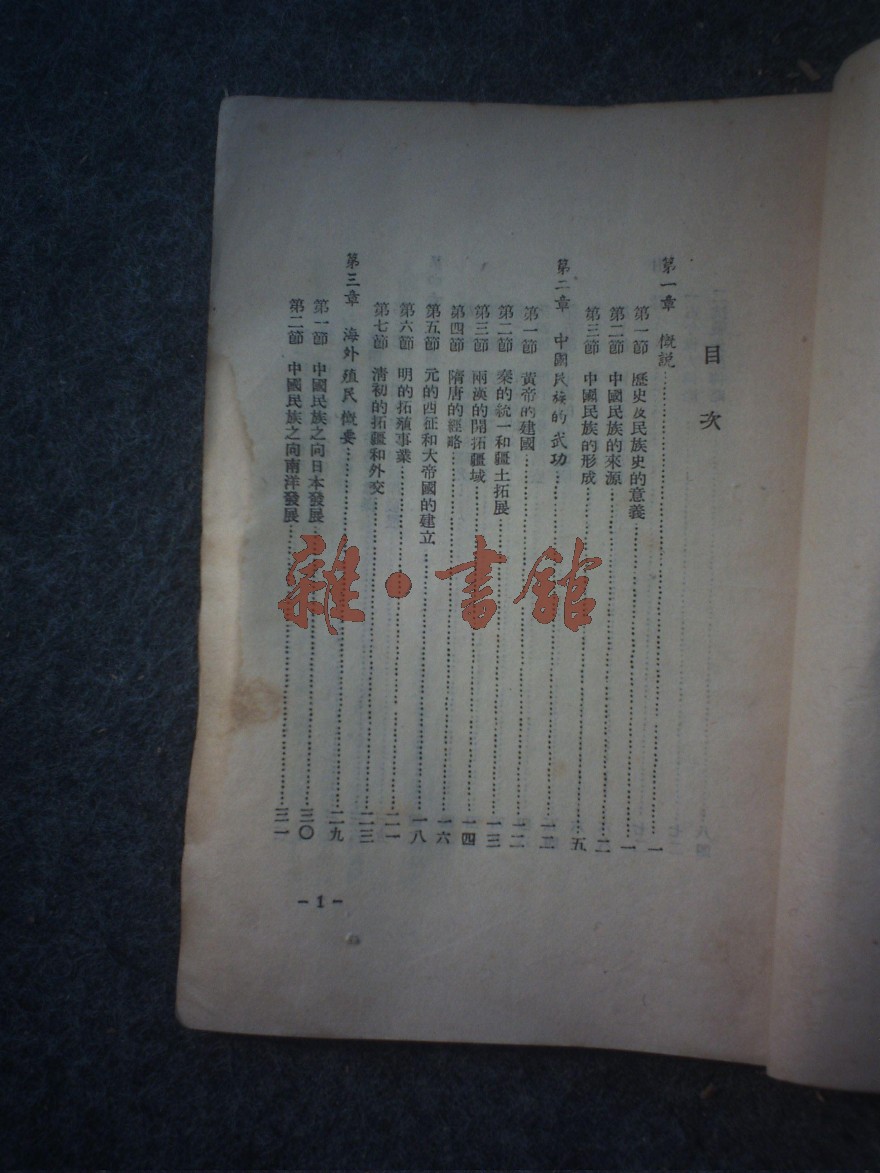 目次
第一章　概説……一
第一節　歷史及民族史的意義……一
第二節　中國民族的來源……二
第三節　中國民族的形成……五
第二章　中國民族的武功……一二
第一節　黃帝的建國……一二
第二節　秦的統一和疆土拓展……一三
第三節　兩漢的開拓疆域……一四
第四節　隋唐的經略……一六
第五節　元的西征和大帝國的建立……一八
第六節　明的拓殖事業……二一
第七節　清初的拓疆和外交……二三
第三章　海外殖民概要……二九
第一節　中國民族之向日本發展……三〇
第二節　中國民族之向南洋發展……三一
-1-
雜·書館